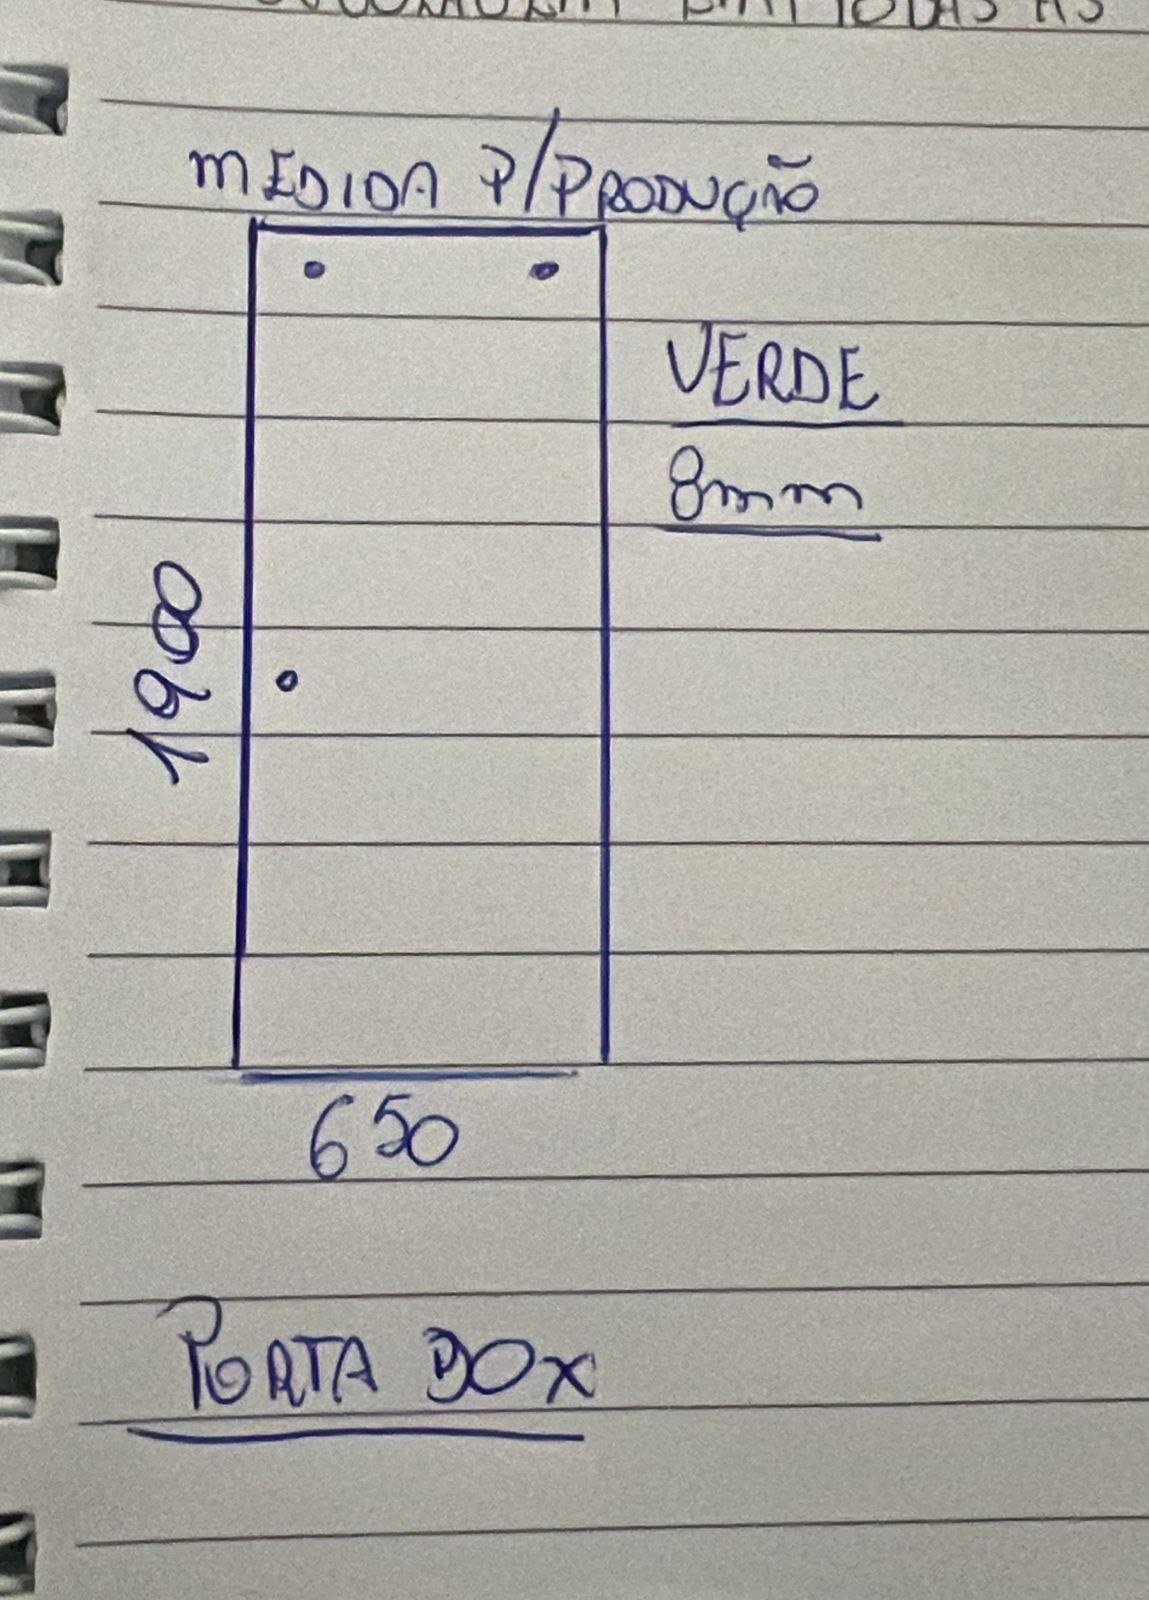 EM TODAS AS
MEDIDA P/PRODUÇÃO
VERDE
8mm
1900
650
PORTA BOX